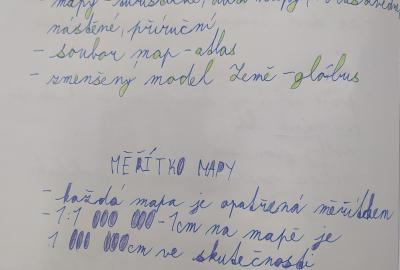 mapy - turistické,
nástěné, příruční
- soubor map - atlas
- zmenšený model Země - glóbus
MĚŘÍTKO MAPY
- každá mapa je opatřená měřítkem
- 1:1 000 000 - 1cm na mapě je
1 000 000cm ve skutečnosti